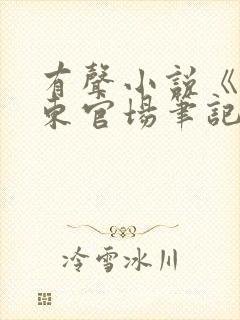 有聲小説《
東官場筆記
冷雪冰川